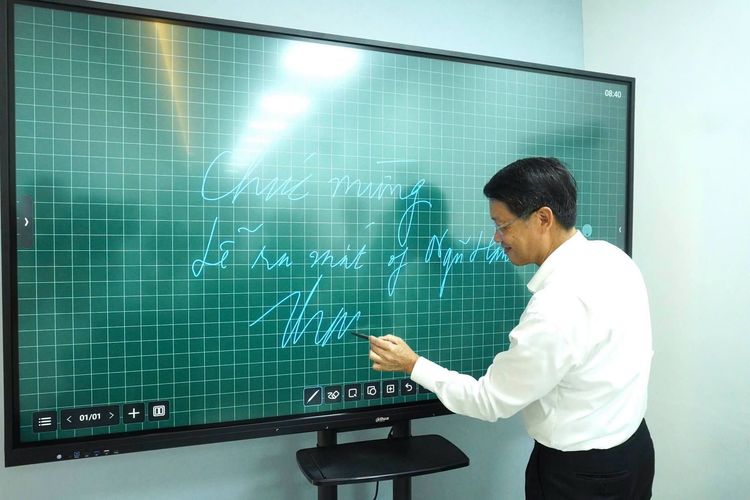 08:40
Chúc mừng
Lễ ra mắt of Ngũ Hàn
01/01
alhua